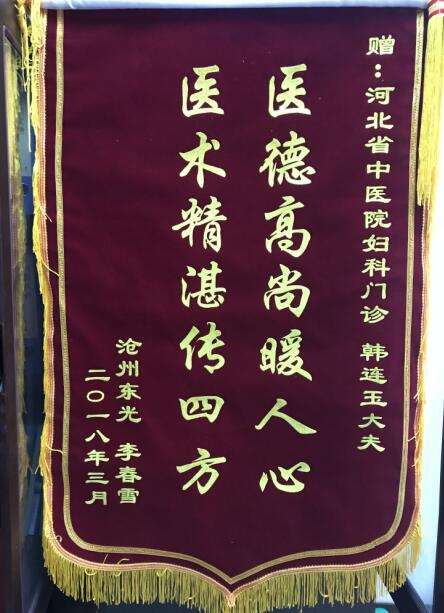 赠：河北省中医院妇科门诊 韩连玉大夫
医德高尚暖人心
医术精湛传四方
沧州东光 李春雪
二〇一八年三月